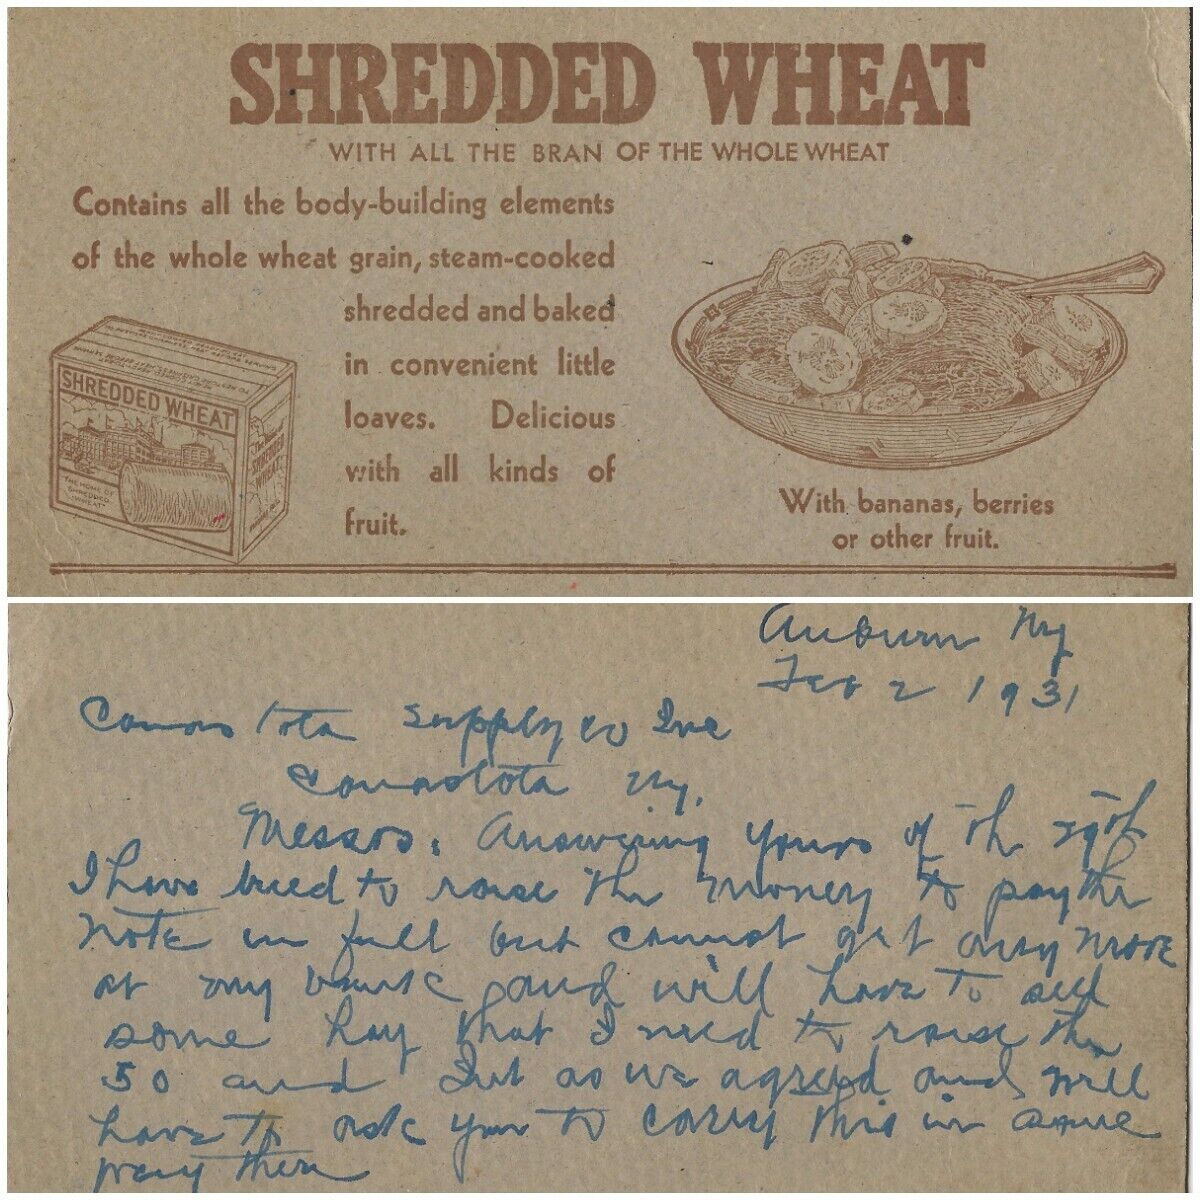 SHREDDED WHEAT
WITH ALL THE BRAN OF THE WHOLE WHEAT
Contains all the body-building elements
of the whole wheat grain, steam-cooked
shredded and baked
in convenient little
loaves. Delicious
with all kinds of
fruit.
SHREDDED WHEAT
THE HOME OF
SHREDDED
WHEAT
SHREDDED
WHEAT
With bananas, berries
or other fruit.
Auburn Ny
Feb 2 1931
Canastota Supply Co Inc
Canastota Ny.
Messrs. Answering yours of the 29th
I have tried to raise the money to pay the
note in full but cannot get any more
at my bank and will have to sell
some hay that I need to raise the
50 and Int as we agreed and will
have to ask you to carry this in same
way then